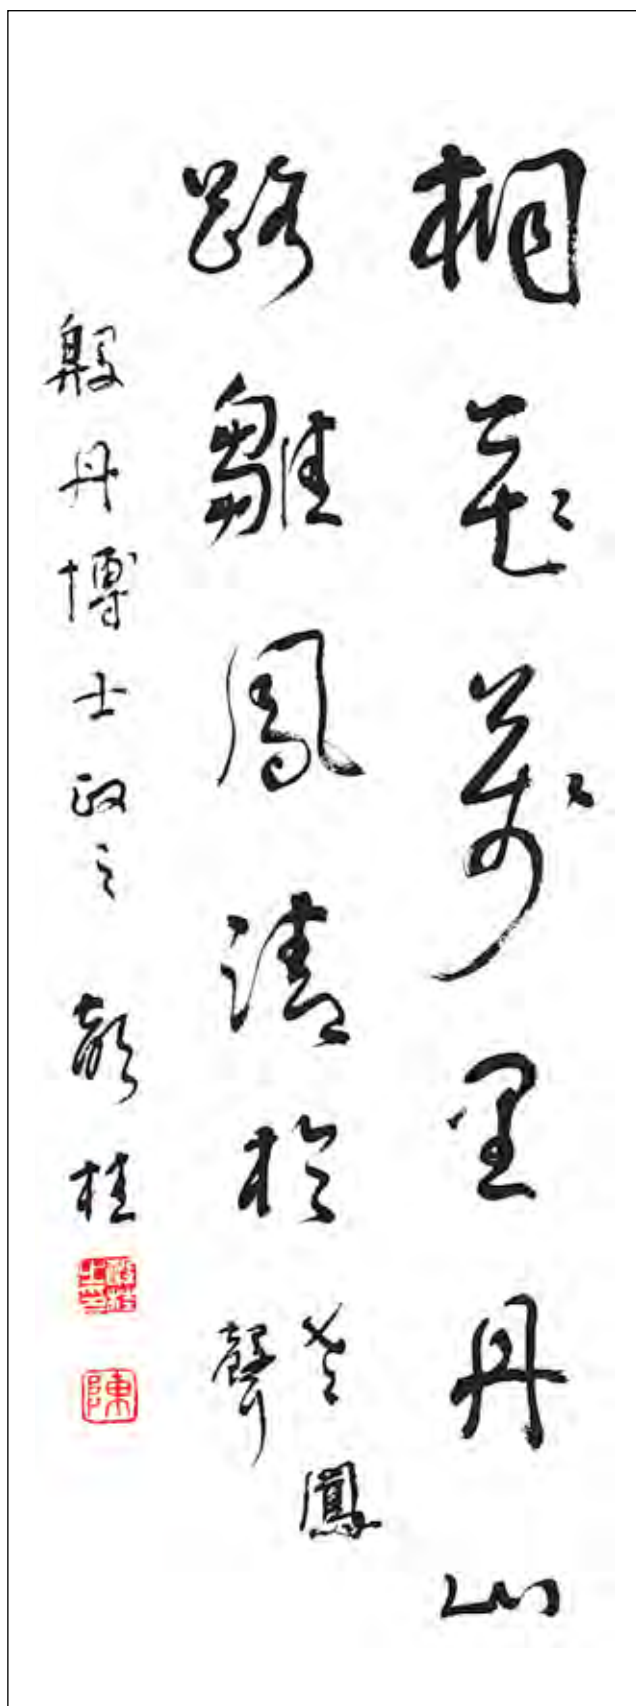 桐花萬里丹山
路雛鳳清於老鳳聲
殷丹博士政之 桂
陳